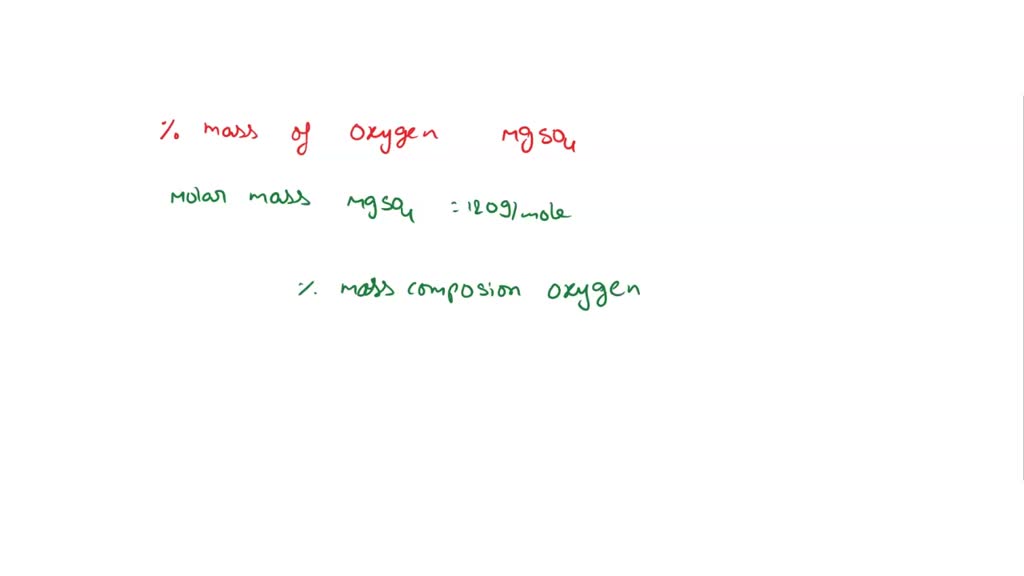 % mass of oxygen MgSO4
Molar mass MgSO4 = 120g/mole
% mass composion oxygen